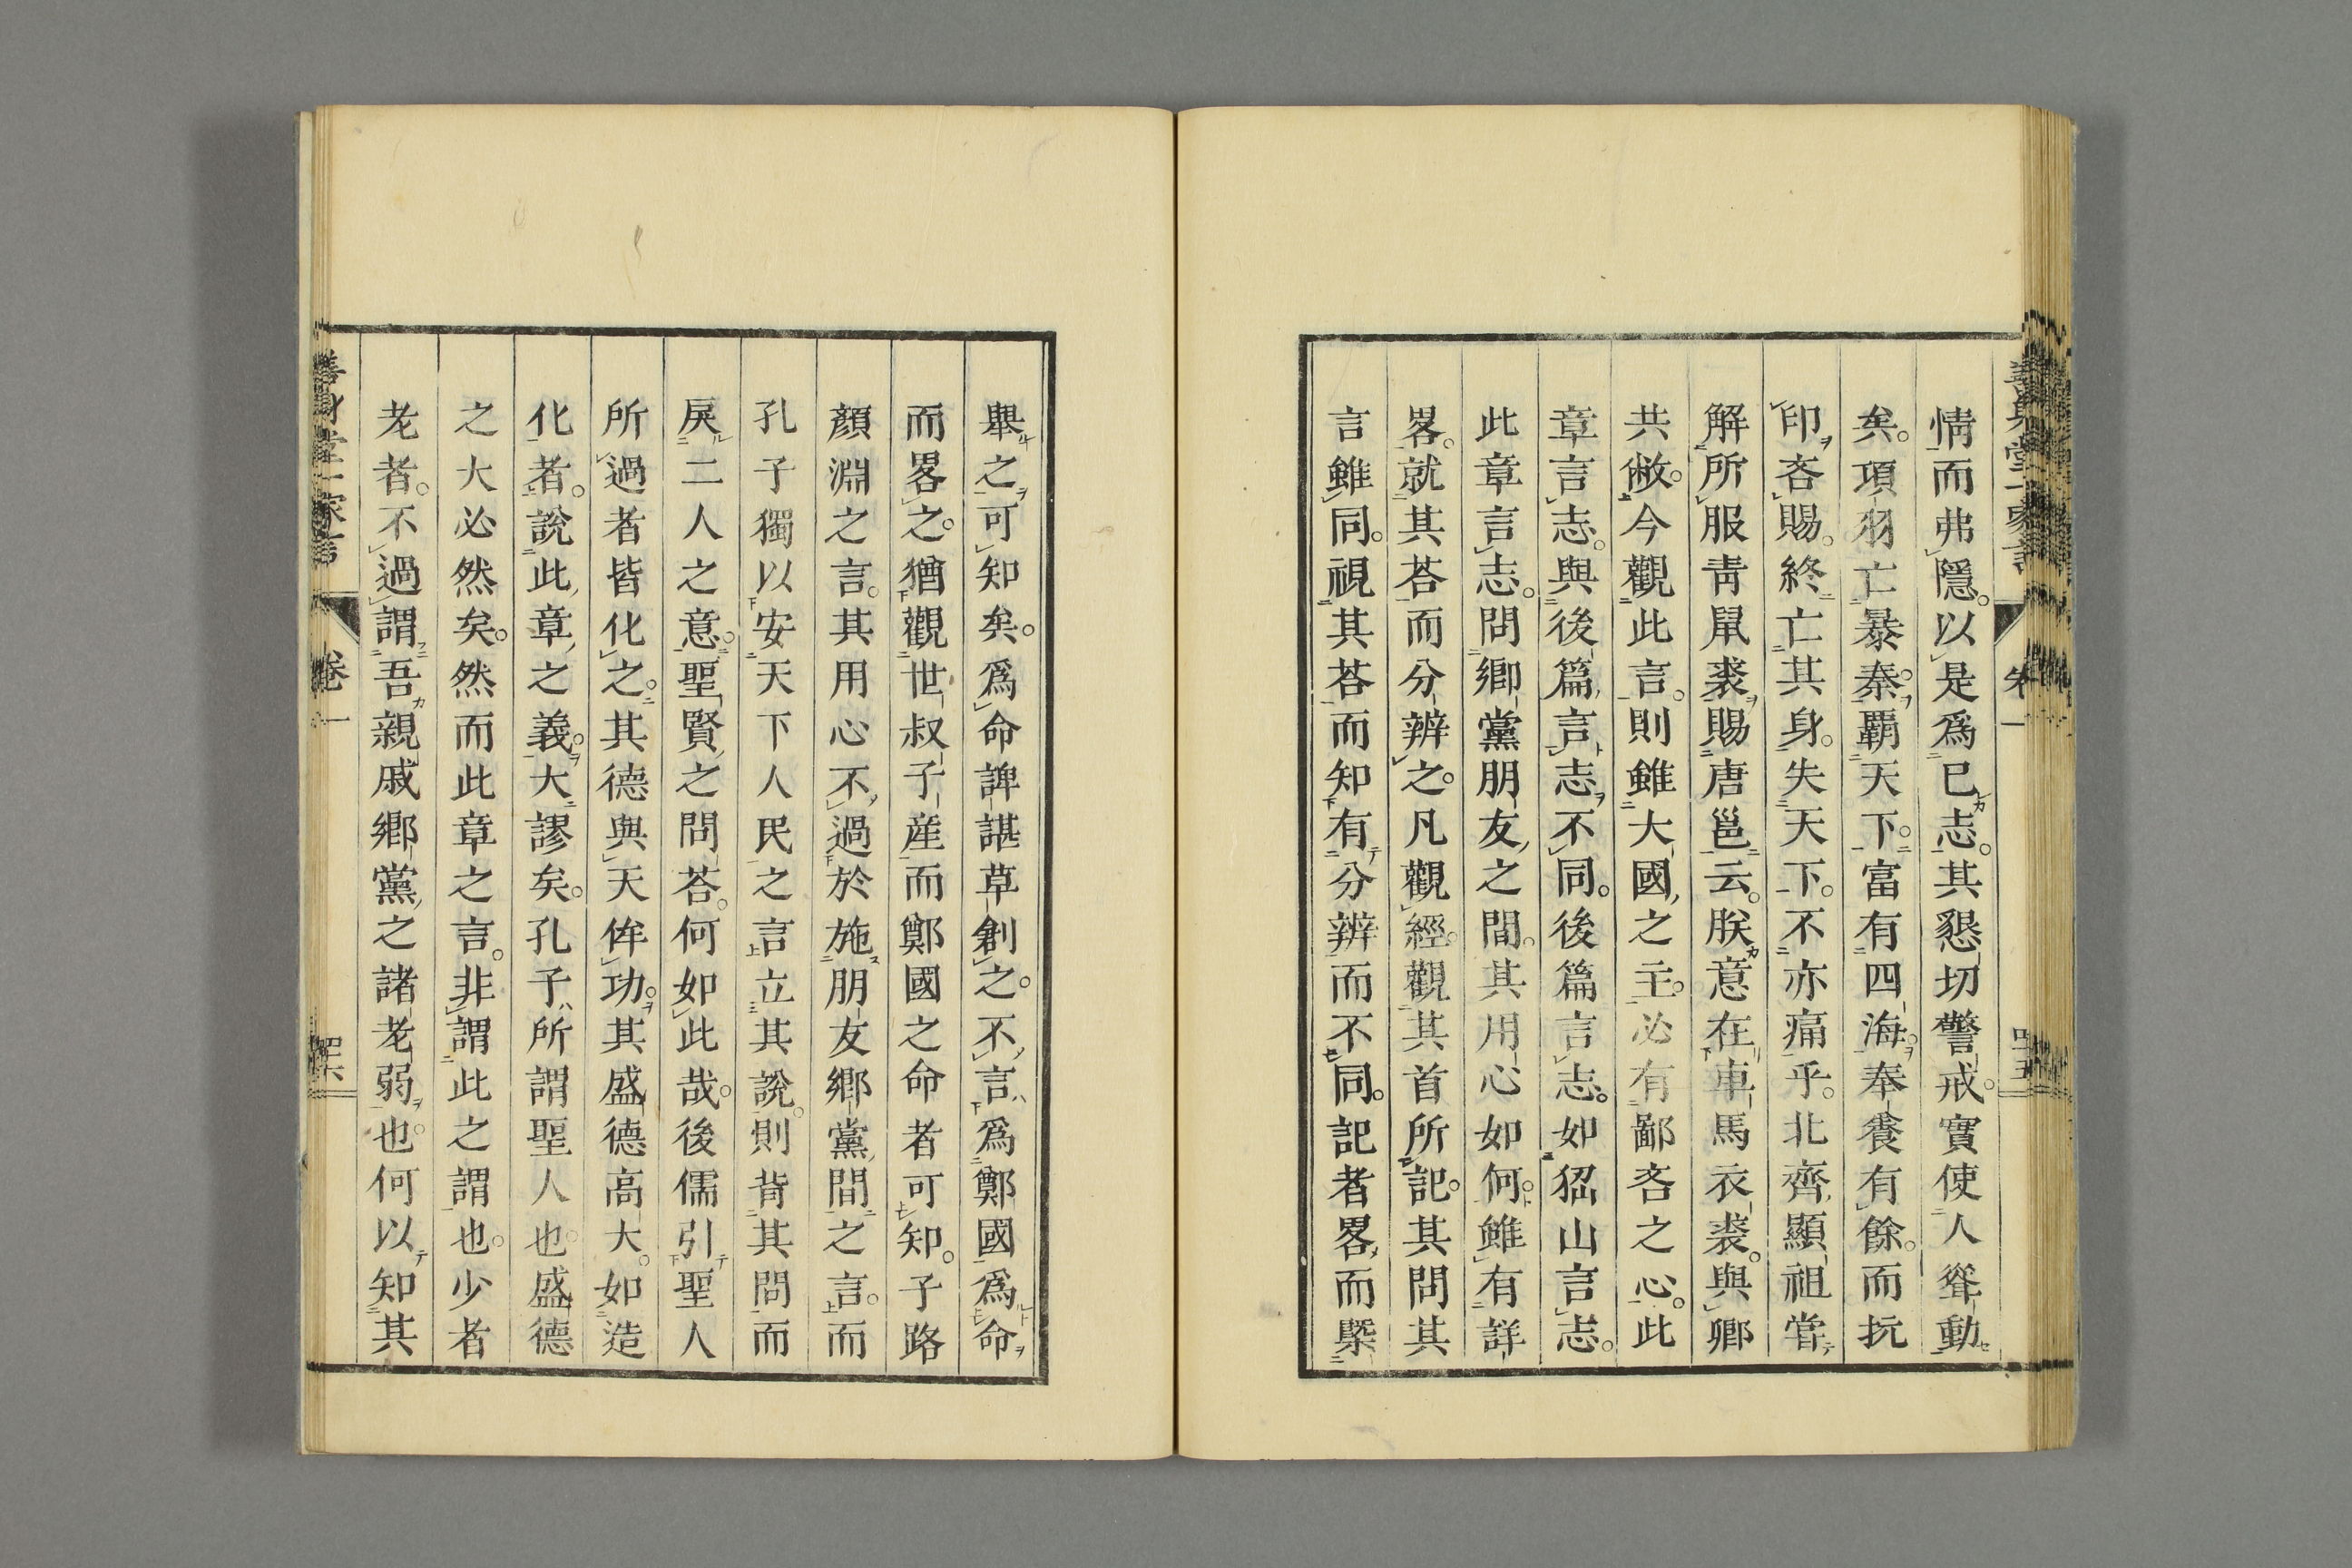 情而弗隱。以是爲已志。其懇切警戒。實使人聳動
矣。項羽亡暴秦。覇天下。富有四海。奉養有餘。而抏
印吝賜。終亡其身。失天下。不亦痛乎。北齊顯祖甞
解所服靑鼠裘賜唐邕云。朕意在車馬衣裘。與卿
共敝。今觀此言。則雖大國之主。必有鄙吝之心。此
章言志。與後篇言志不同。後篇言志。如猺山言志。
此章言志。問鄉黨朋友之間。其用心如何。雖有詳
畧。就其荅而分辨之。凡觀經。觀其首所記。其問其
言雖同。視其荅而知有分辨而不同。記者畧而槩
擧之可知矣。爲命諀諶草創之。不言爲鄭國爲命
而畧之。猶觀世叔子産而鄭國之命者可知。子路
顏淵之言。其用心不過於施朋友鄉黨間之言。而
孔子獨以安天下人民之言立其說。則背其問而
戾二人之意。聖賢之問荅。何如此哉。後儒引聖人
所過者皆化之。其德與天侔功。其盛德高大。如造
化者。說此章之義。大謬矣。孔子所謂聖人也。盛德
之大必然矣。然而此章之言。非謂此之謂也。少者
老者。不過謂吾親戚鄉黨之諸老弱也。何以知其
善身堂一家言
卷一
四十六